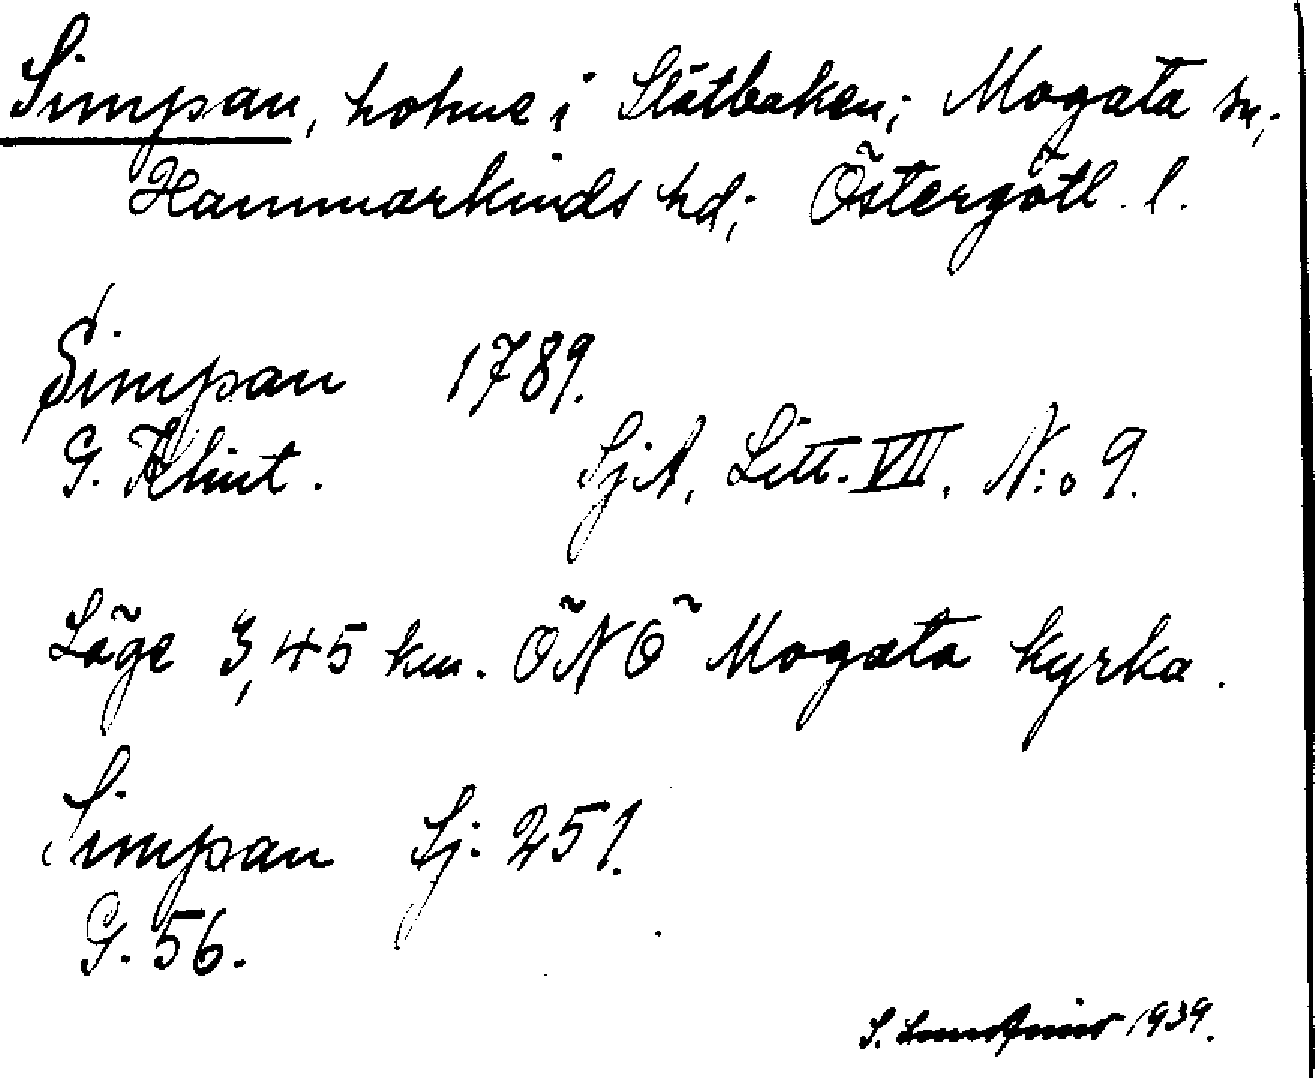 Simpan, holme i Slätbaken; Mogata sn;
Hammarkinds hd; Östergötl. l.
Simpan 1789.
G. Klint. SjA, Litt. VII. N:o 9.
Läge 3,45 km. ÖNÖ Mogata kyrka.
Simpan Sj: 251.
G. 56.
S. 1939.